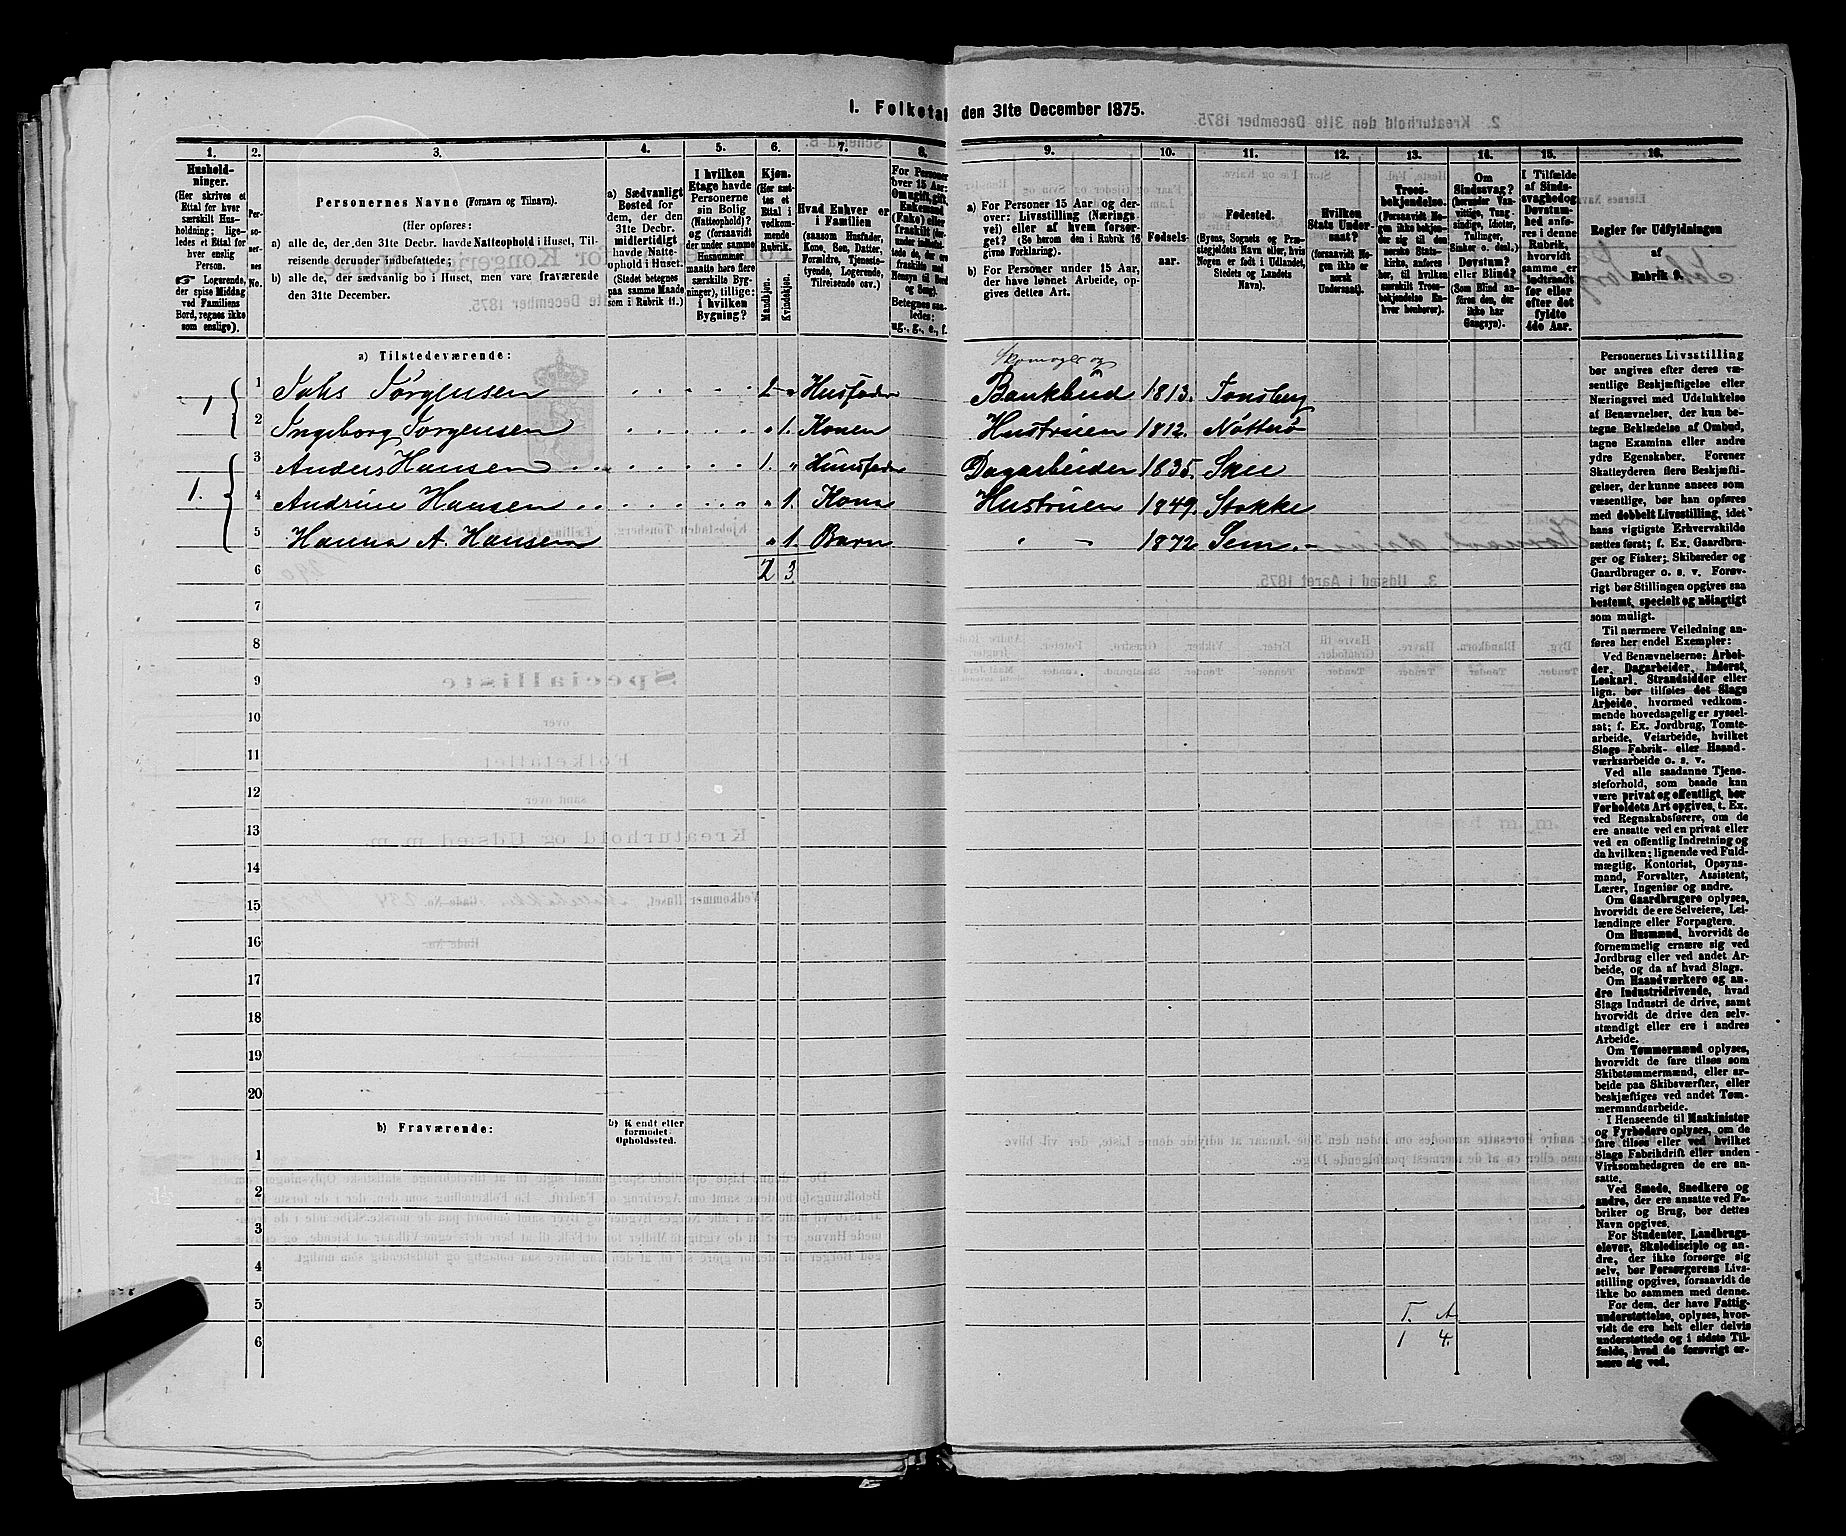 I. Folketal den 31te December 1875.
1. 2. 3. 4. 5. 6. 7. 8. 9. 10. 11. 12. 13. 14. 15. 16.
Husholdninger.
(Her skrives et Ettal for hver særskilt Husholdning; ligeledes et Ettal for hver enslig Person.
☞ Logerende, der spise Middag ved Familiens Bord, regnes ikke som enslige).
Personernes No.
Personernes Navne (Fornavn og Tilnavn).
(Her opføres:
a) alle de, der den 31te Decbr. havde Natteophold i Huset, Tilreisende derunder indbefattede;
b) alle de, der sædvanlig bo i Huset, men vare fraværende den 31te December.
a) Sædvanligt Bosted for dem, der den 31te Decbr. midlertidigt havde Natteophold i Huset.
(Stedet betegnes paa samme Maade som i Rubrik 11.)
I hvilken Etage havde Personerne sin Bolig (Natteophold)? og (forsaavidt der under samme Husnummer maatte høre flere særskilte Bygninger), tillige: i hvilken Bygning?
Kjøn.
(Her sættes et Ettal i vedkommende Rubrik.
Mandkjøn. Kvindekjøn.
Hvad Enhver er i Familien
(saasom Husfader, Kone, Søn, Datter, Forældre, Tjenestetyende, Logerende, Tilreisende osv.)
For Personer over 15 Aar: Om ugift, gift, Enkemand (Enke) eller fraskilt
Betegnes saaledes: ug., g., e., f.
a) For Personer 15 Aar og derover: Livsstilling (Næringsvei) eller af hvem forsørget? (Se herom den i Rubrik 16 givne Forklaring).
b) For Personer under 15 Aar, der have lønnet Arbeide, opgives dettes Art.
Fødselsaar.
Fødested.
(Byens, Sognets og Præstegjeldets Navn eller, hvis Nogen er født i Udlandet, Stedets og Landets Navn).
Hvilken Stats Undersaat?
(forsaavidt Nogen ikke er norsk Undersaat).
Troesbekjendelse.
(Forsaavidt Nogen ikke bekjender sig til den norske Statskirke, anføres her, til hvilken særskilt Troesbekjendelse Enhver henhører).
Om Sindssvag? (herunder Vanvittige, Tungsindige, Idioter, Tullinger, Sinker o. desl.) Døvstum? eller Blind?
(Som Blind anføres den, der ikke har Gangsyn).
I Tilfælde af Sindssvaghed og Døvstumhed anføres i denne Rubrik, hvorvidt samme er indtraadt før eller efter det fyldte 4de Aar.
Regler for Udfyldningen af Rubrik 9.
a) Tilstedeværende:
Skomager og
1 1 Johs Jörgensen 1 „ Husfader Bankbud 1813. Tønsberg
2 Ingeborg Jörgensen „ 1. Konen Hustruen 1812. Nötterö
1. 3 Anders Hansen 1. „ Huusfader Dagarbeider 1835. Skee
4 Andrine Hansen „ 1. Kone Hustruen 1849. Stokke
5 Hanna A. Hansen „ 1. Barn 1872 Sem.
6 2 3
7
8
9
10
11
12
13
14
15
16
17
18
19
20
b) Fraværende:
b) Kjendt eller formodet Opholdssted.
1
2
3
4
5
6
T. A
1 4.
Personernes Livsstilling
bør angives efter deres væ-
sentlige Beskjæftigelse eller
Næringsvei med Udelukkelse
af Benævnelser, der kun be-
tegne Beklædelse af Ombud,
tagne Examina eller andre
ydre Egenskaber. Forener
Skatteyderen flere Beskjæfti-
gelser, der kunne ansees som
væsentlige, bør han opføres
med dobbelt Livsstilling, idet
hans vigtigste Erhvervskilde
sættes først; f. Ex. Gaardbru-
ger og Fisker; Skibsreder og
Gaardbruger o. s. v. Forøv-
rigt bør Stillingen opgives saa
bestemt, specielt og nøiagtigt
som muligt.
Til nærmere Veiledning an-
føres her endel Exempler:
Ved Benævnelserne: Arbei-
der, Dagarbeider, Inderst,
Løskarl, Strandsidder eller
lign. bør tilføies det Slags
Arbeide, hvormed vedkom-
mende hovedsagelig er syssel-
sat; f. Ex. Jordbrug, Tomte-
arbeide, Veiarbeide, hvilket
Slags Fabrik- eller Haand-
værksarbeide o. s. v.
Ved alle saadanne Tjene-
steforhold, som baade kan
være privat og offentligt, bør
Forholdets Art opgives, t. Ex.
ved Regnskabsførere, om de
ere ansatte ved en privat eller
ved en offentlig Indretning og
da hvilken; lignende ved Fuld-
mægtig, Kontorist, Opsyns-
mand, Forvalter, Assistent,
Lærer, Ingeniør og andre.
Om Gaardbrugere oplyses,
hvorvidt de ere Selveiere, Lei-
lændinge eller Forpagtere.
Om Husmænd, hvorvidt de
fornemmelig ernære sig ved
Jordbrug eller ved andet Ar-
beide, og da af hvad Slags.
Om Haandværkere og an-
dre Industridrivende, hvad
Slags Industri de drive, samt
hvorvidt de drive den selv-
stændigt eller ere i andres
Arbeide.
Om Tømmermænd oplyses,
hvorvidt de fare tilsøs som
Skibstømmermænd, eller ar-
beide paa Skibsværfter, eller
beskjæftiges ved andet Tøm-
mermandsarbeide.
I Henseende til Maskinister
og Fyrbødere oplyses, om de
fare tilsøs eller ved hvilket
Slags Fabrikdrift eller anden
Virksomhedsgren de ere an-
satte.
Ved Smede, Snedkere og
andre, der ere ansatte ved Fa-
briker og Brug, bør dettes
Navn opgives.
For Studenter, Landbrugs-
elever, Skoledisciple og an-
dre, der ikke forsørge sig
selv, bør Forsørgerens Livs-
stilling opgives, forsaavidt de
ikke bo sammen med denne.
For dem, der have Fattig-
understøttelse, oplyses, hvor-
vidt de ere helt eller delvis
understøttede og i sidste Til-
fælde, hvad de forøvrigt er-
nære sig ved.